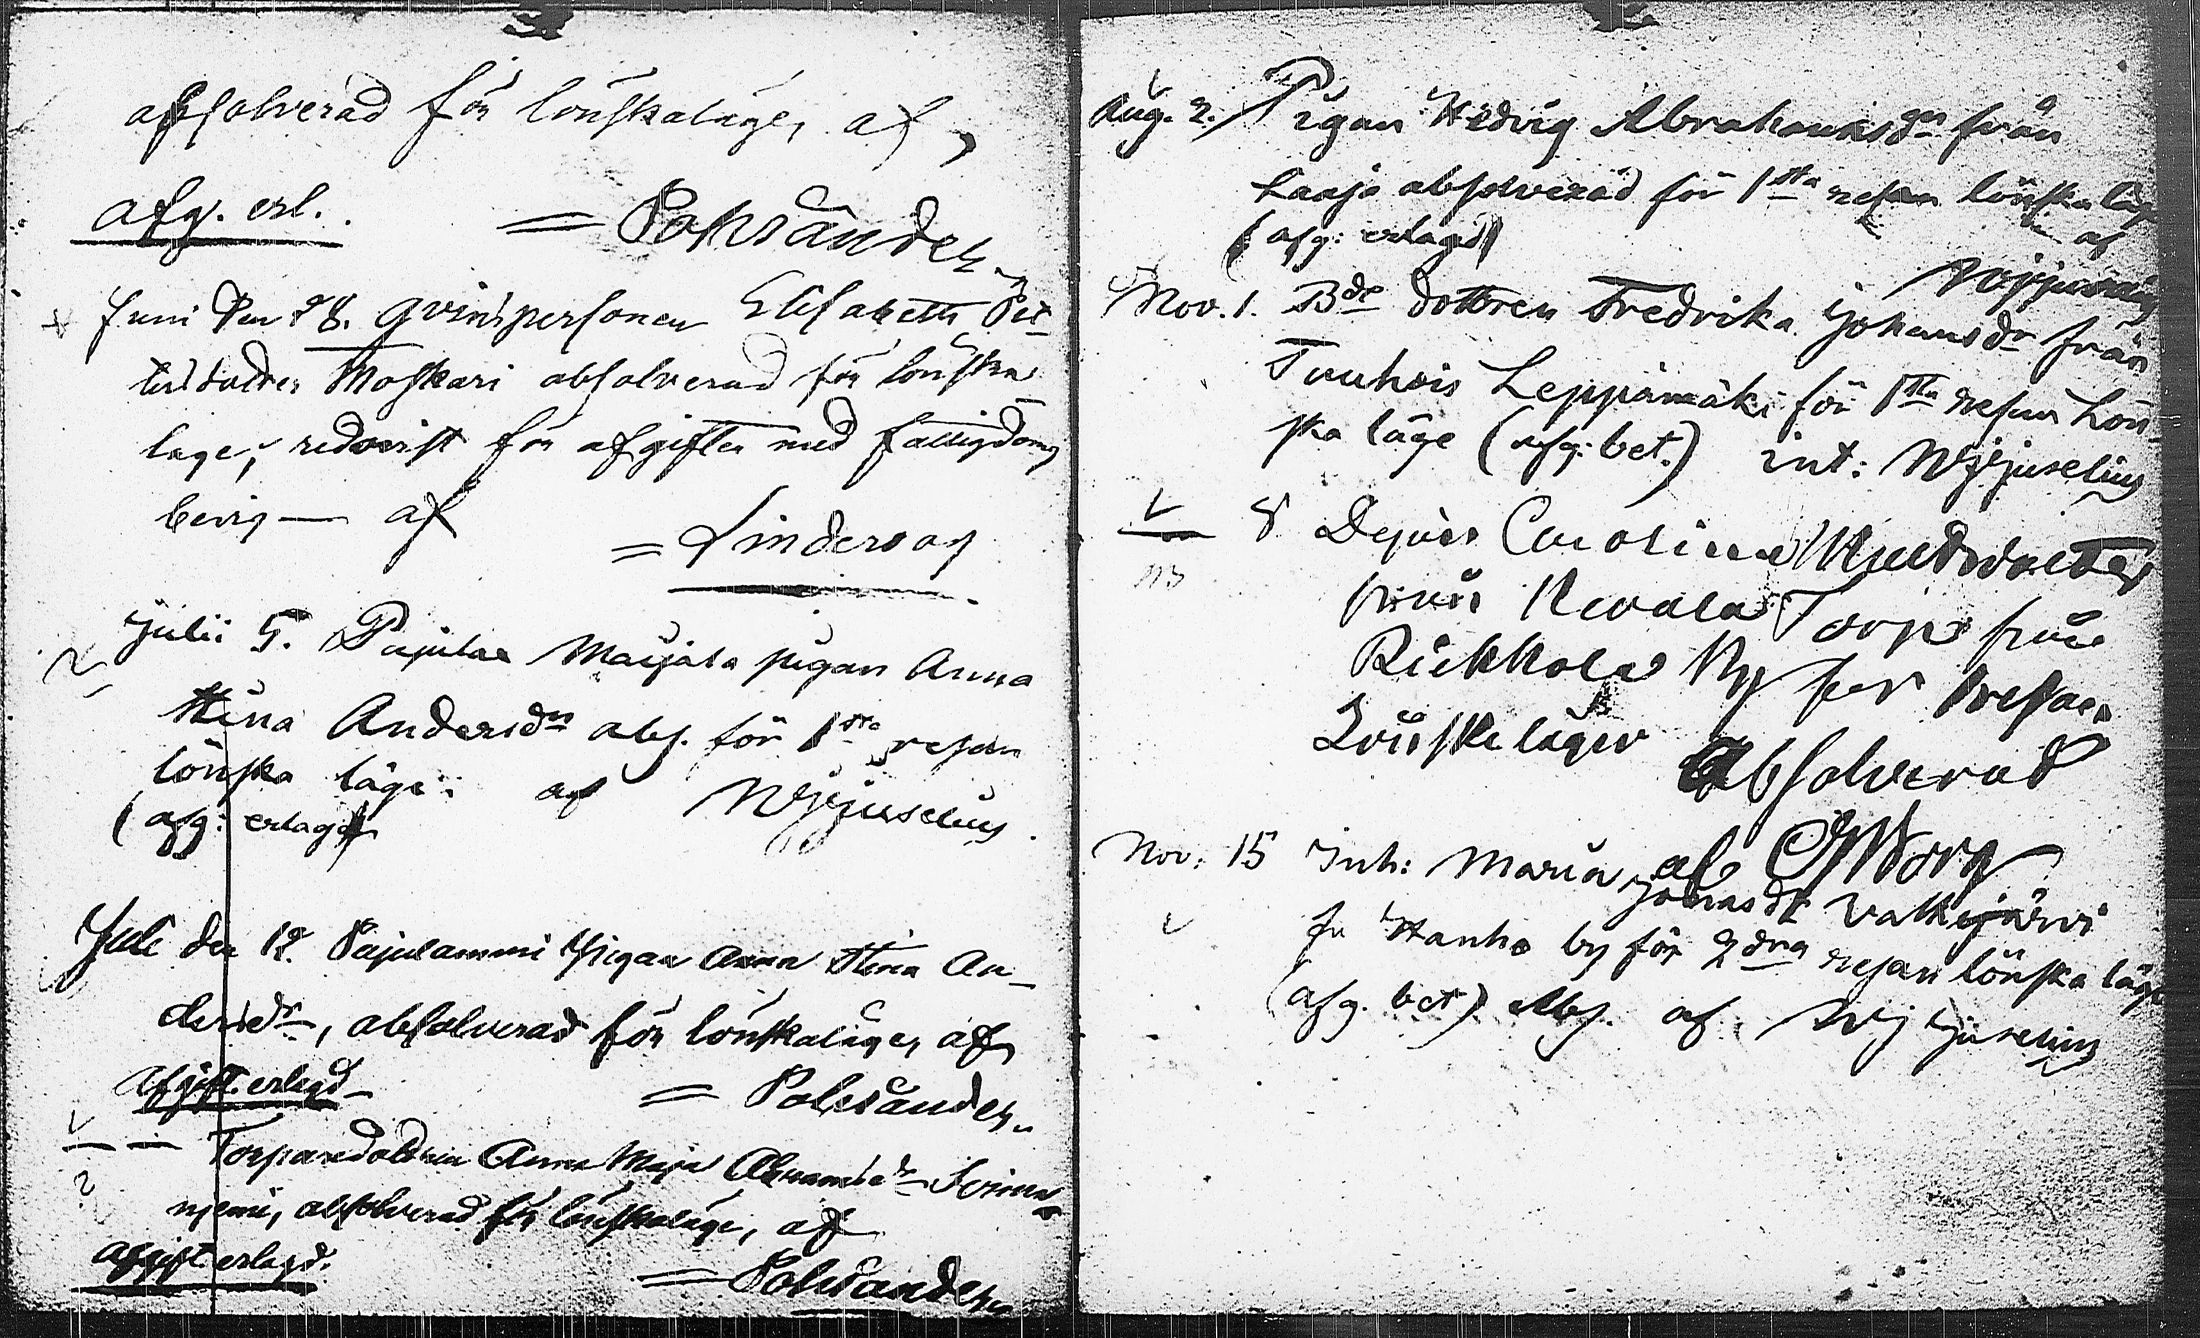 absolverad för lönskaläge, af
afg. erl.
= Polviander
Juni den 28. Qvinspersonen Elisabeth Pet-
tersdotter Moskari absolverad för lönska
läge, redovist för afgiften med fattigdoms
bevis — af
= Lindersag
Julii 5. Pajulax Marjala pigan Anna
Stina Andersdr abs. för 1sta resan
lönska läge: af W Juselius
(afg: erlagd)
Juli den 12. Pajulammi Pigan Anna Stina An-
dersdr, absolverad för lönskaläge, af
Afgift. erlagd
= Polviander
— Torparedottren Anna Maja Abramsdr
niemi, absolverad för lönskaläge, af
afgift erlagd.
= Polviander
Aug. 2. Pigan Hedvig Abrahamsdr från
Laajo absolverad för 1sta resan lönska läge
(afg: erlagd) af
W Juselius
Nov. 1. Bde dottren Fredrika Johansdr från
Tuuhois Leppämäki för 1sta resan Lön-
ska läge (afg: bet.) int: W Juselius
— 8 Carolina
NB från Torp från
By för resan
Lönskaläger
Absolverad
af Borg
Nov. 15 Inh: Maria Jonasdr Valkjärvi
fr Hanho by för 2dra resan lönska läge
(afg. bet) Abs. af W Juselius